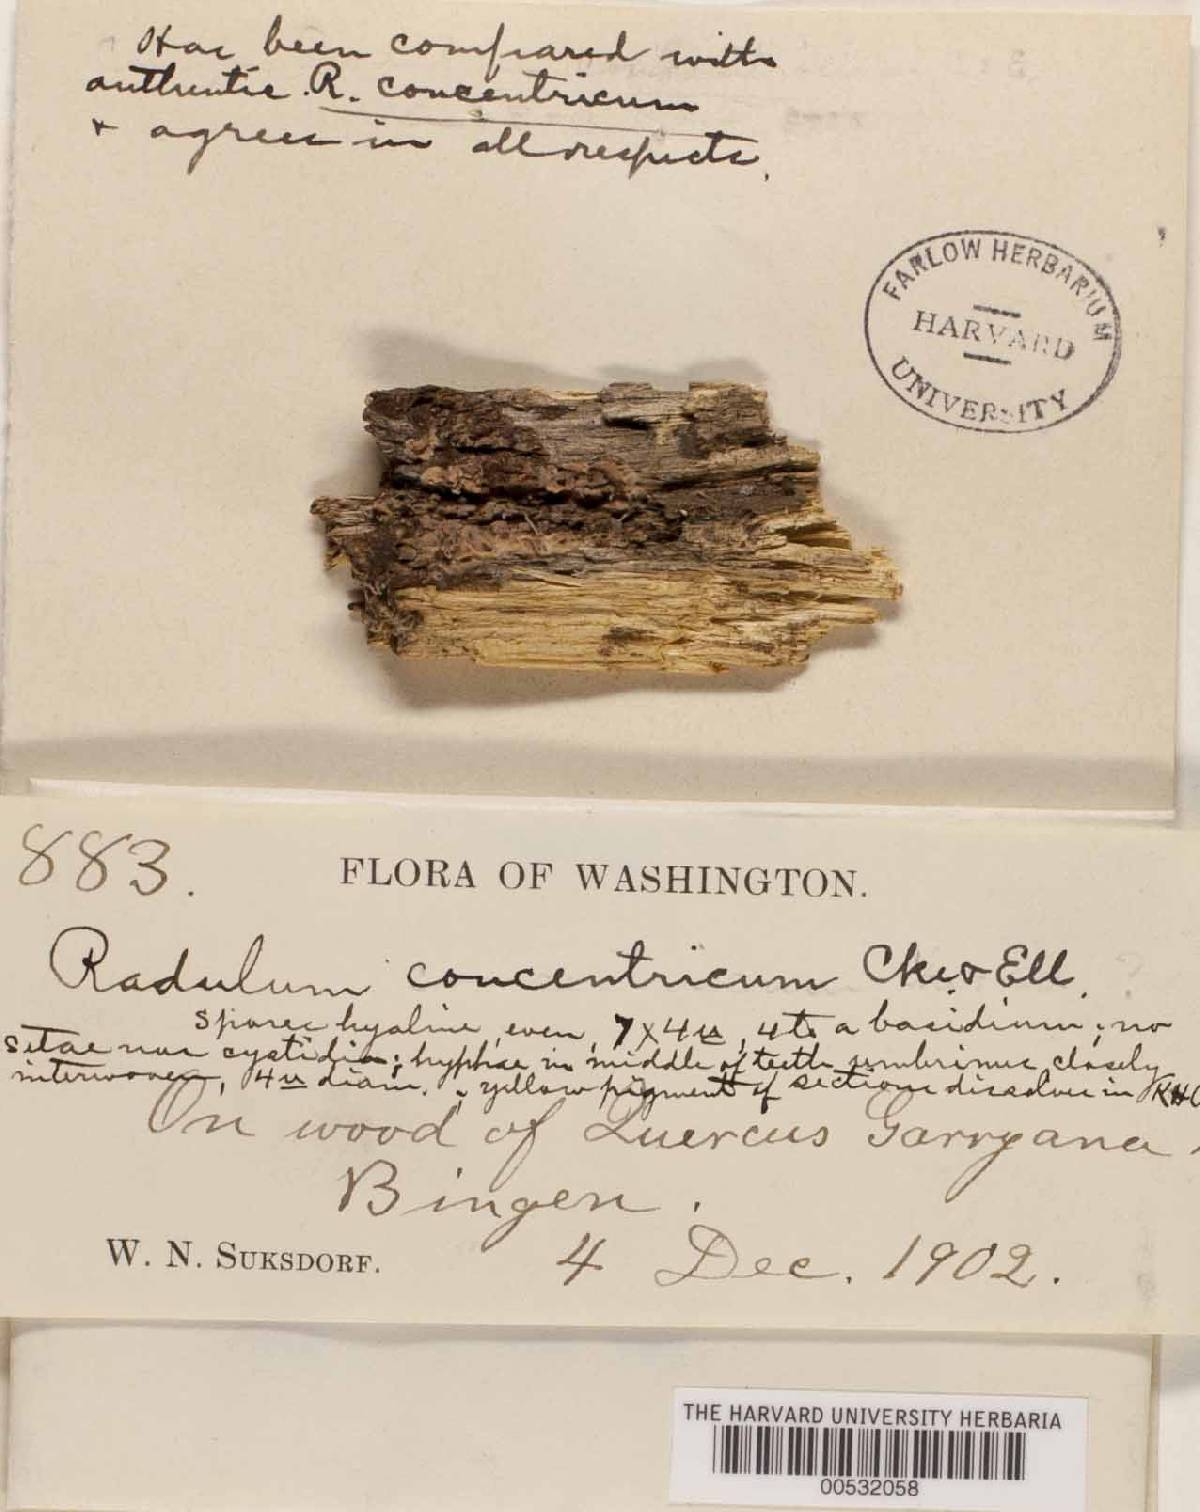 Has been compared with
authentic R. concentricum
+ agrees in all respects.
FARLOW HERBARIUM
HARVARD
UNIVERSITY
883.
FLORA OF WASHINGTON.
Radulum concentricum Cke & Ell.
Spores hyaline, even, 7 x 4 u, 4 to a basidium; no
setae nor cystidia; hyphae in middle of teeth umbrinus closely
interwoven, 4 u diam.; yellow pigment of sections dissolves in KHO
On wood of Quercus Garryana.
Bingen.
W. N. SUKSDORF. 4 Dec. 1902.
THE HARVARD UNIVERSITY HERBARIA
00532058